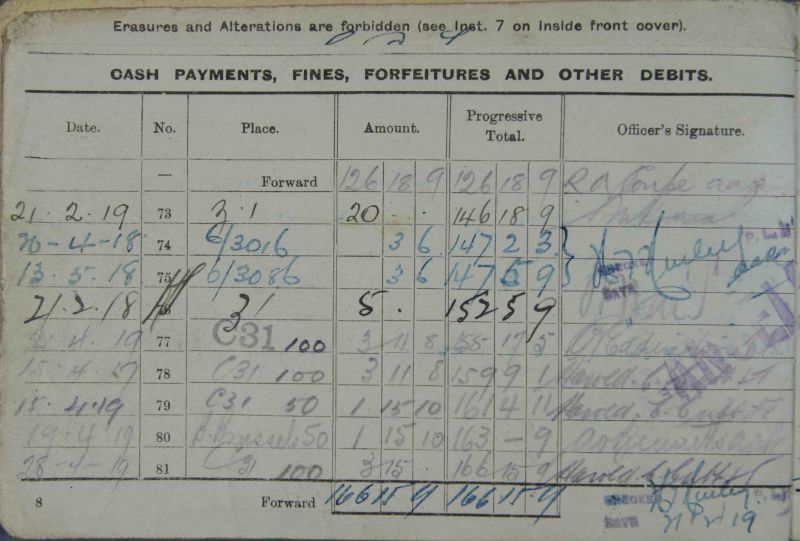 Erasures and Alterations are forbidden (see Inst. 7 on inside front cover).
CASH PAYMENTS, FINES, FORFEITURES AND OTHER DEBITS.
Date. No. Place. Amount. Progressive Total. Officer's Signature.
— Forward 126 18 9 126 18 9
21.2.19 73 3.1 20 . . 146 18 9
20-4-18 74 6/3016 3 6 147 2 3
13.5.18 75 6/3086 3 6 147 5 9
21.2.18 76 31 5 . 152 5 9
4.19 77 C31 100 3 11 8 155 17 5
15.4.19 78 C31 100 3 11 8 159 9 1 Harold
15.4.19 79 C31 50 1 15 10 161 4 11 Harold
19.4.19 80 Brussels 50 1 15 10 163 – 9
28-4-19 81 C31 100 3 15 . 166 15 9 Harold
8 Forward 166 15 9 166 15 9
CHECKED
DATE 21 2 19